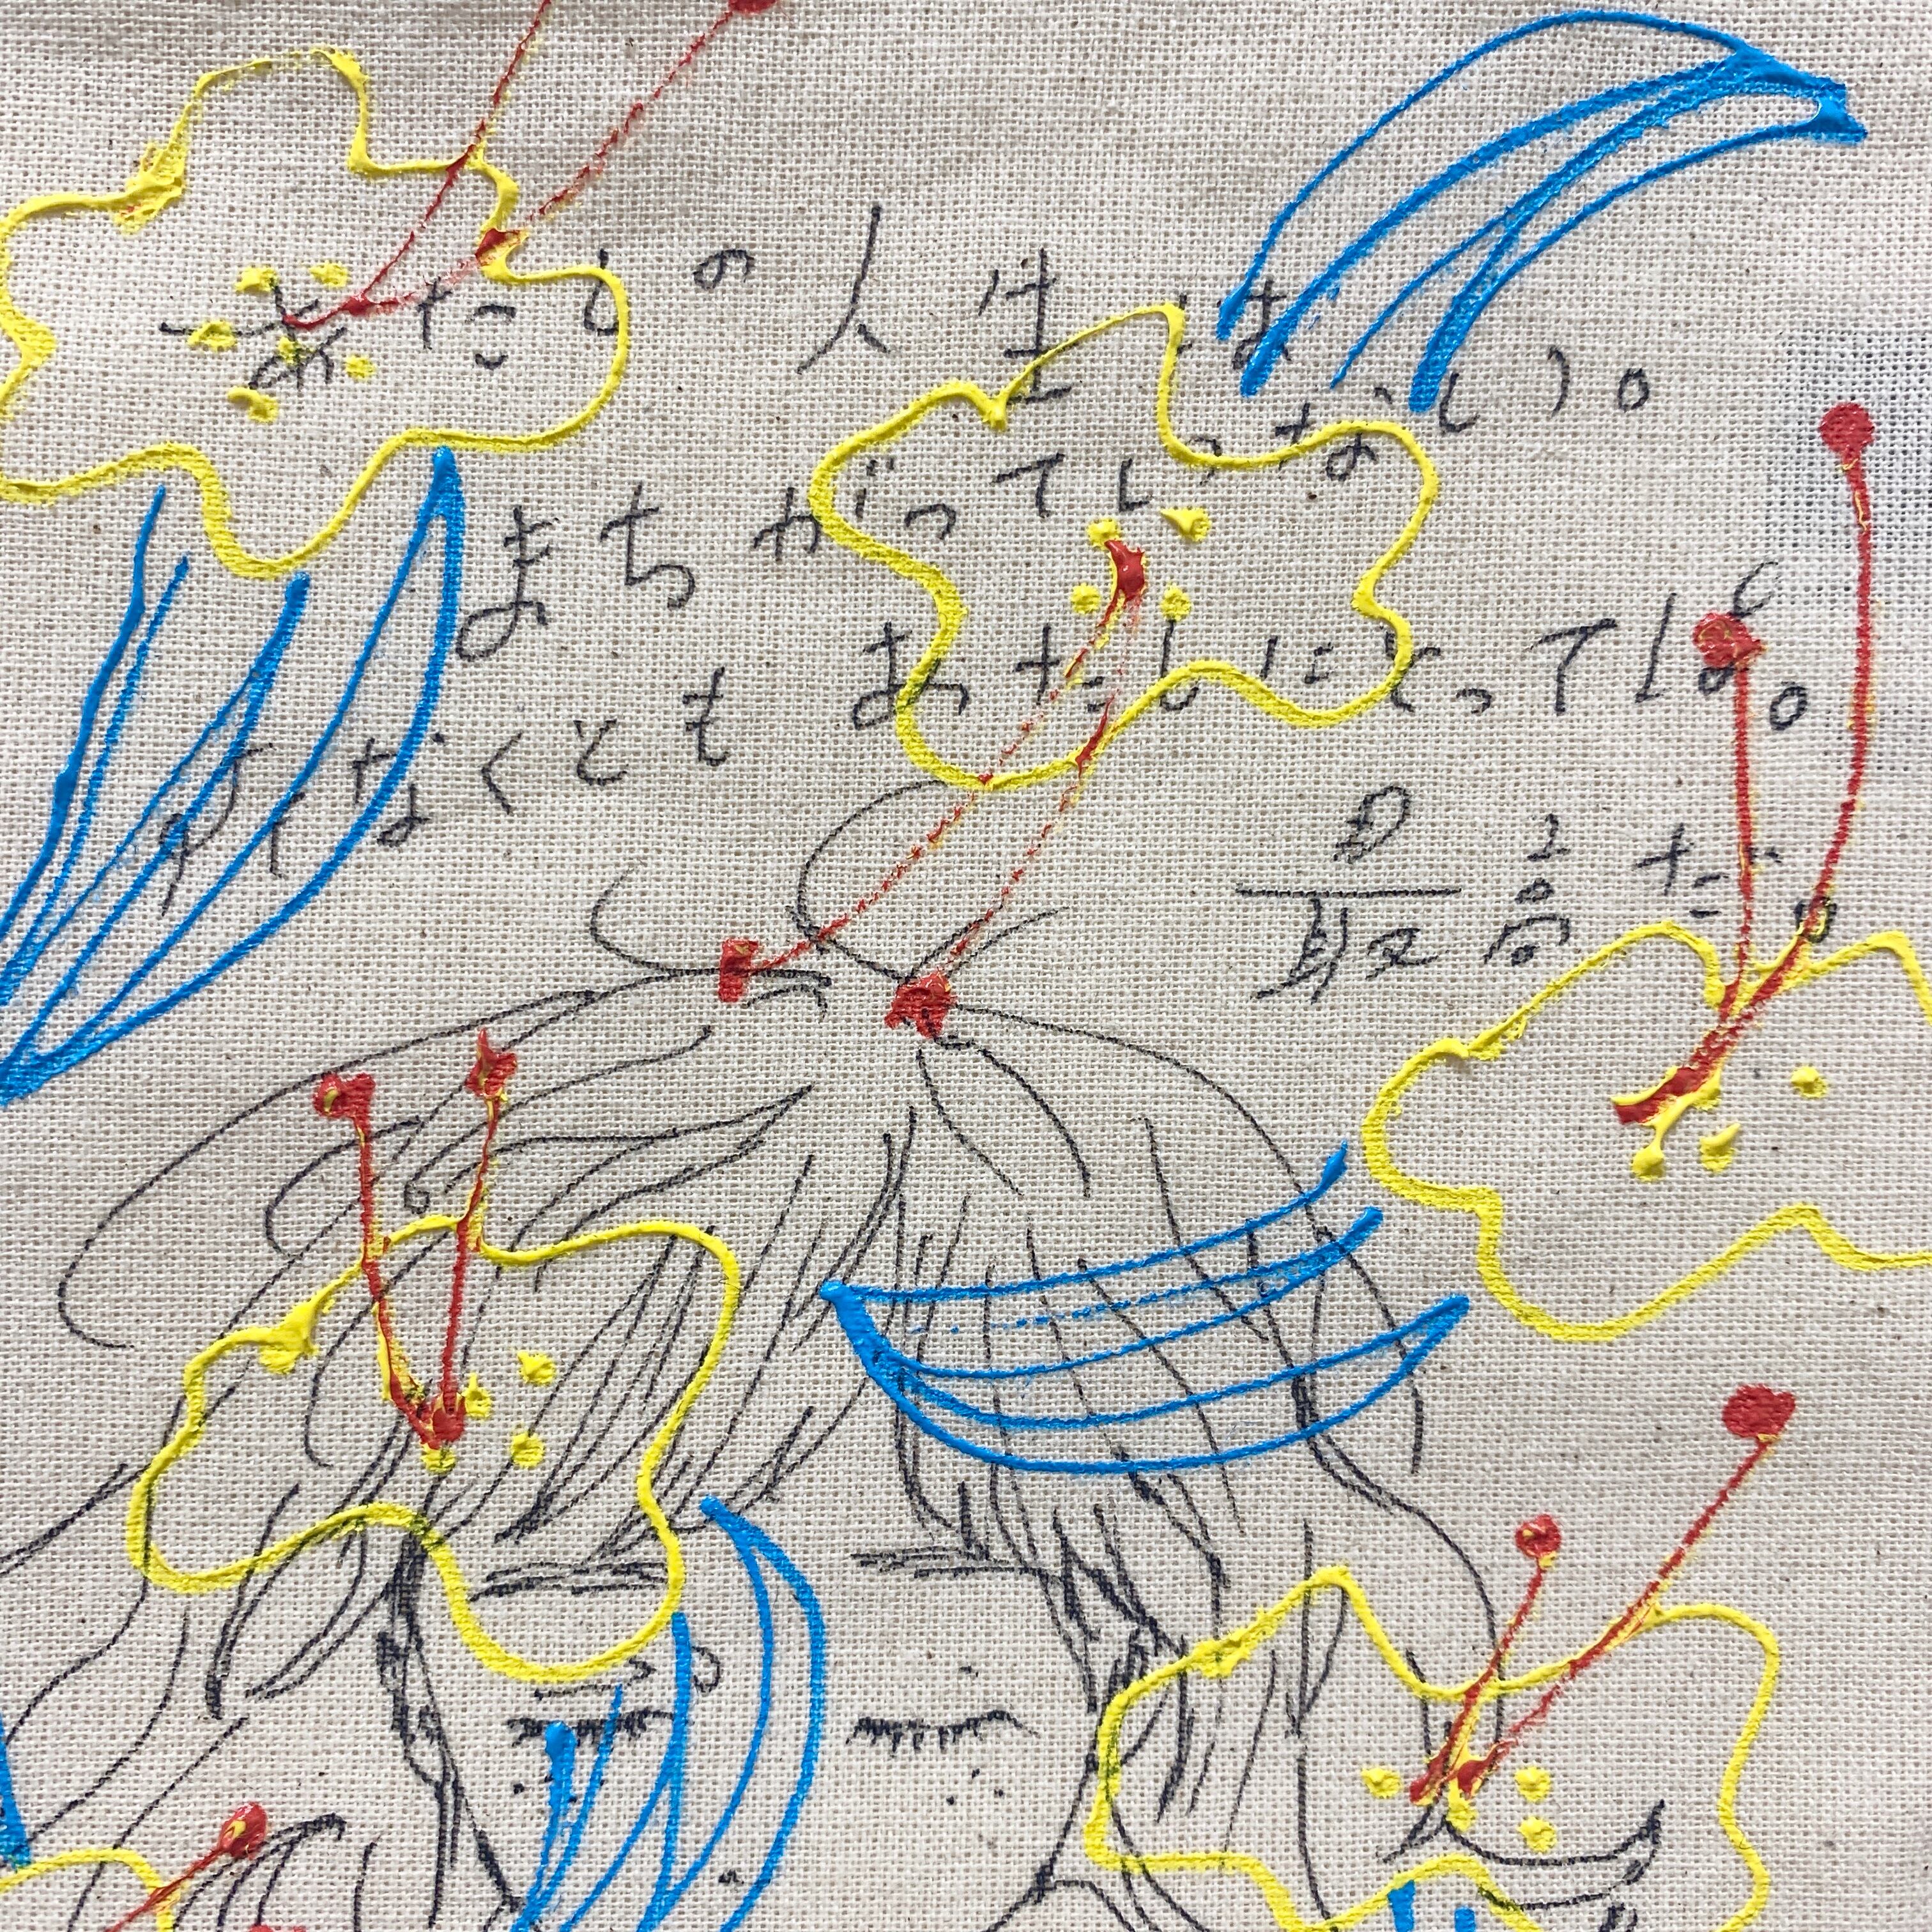 あたしの人生は
まちがってしいない。
すくなくともあたしにとっては。
最高だ